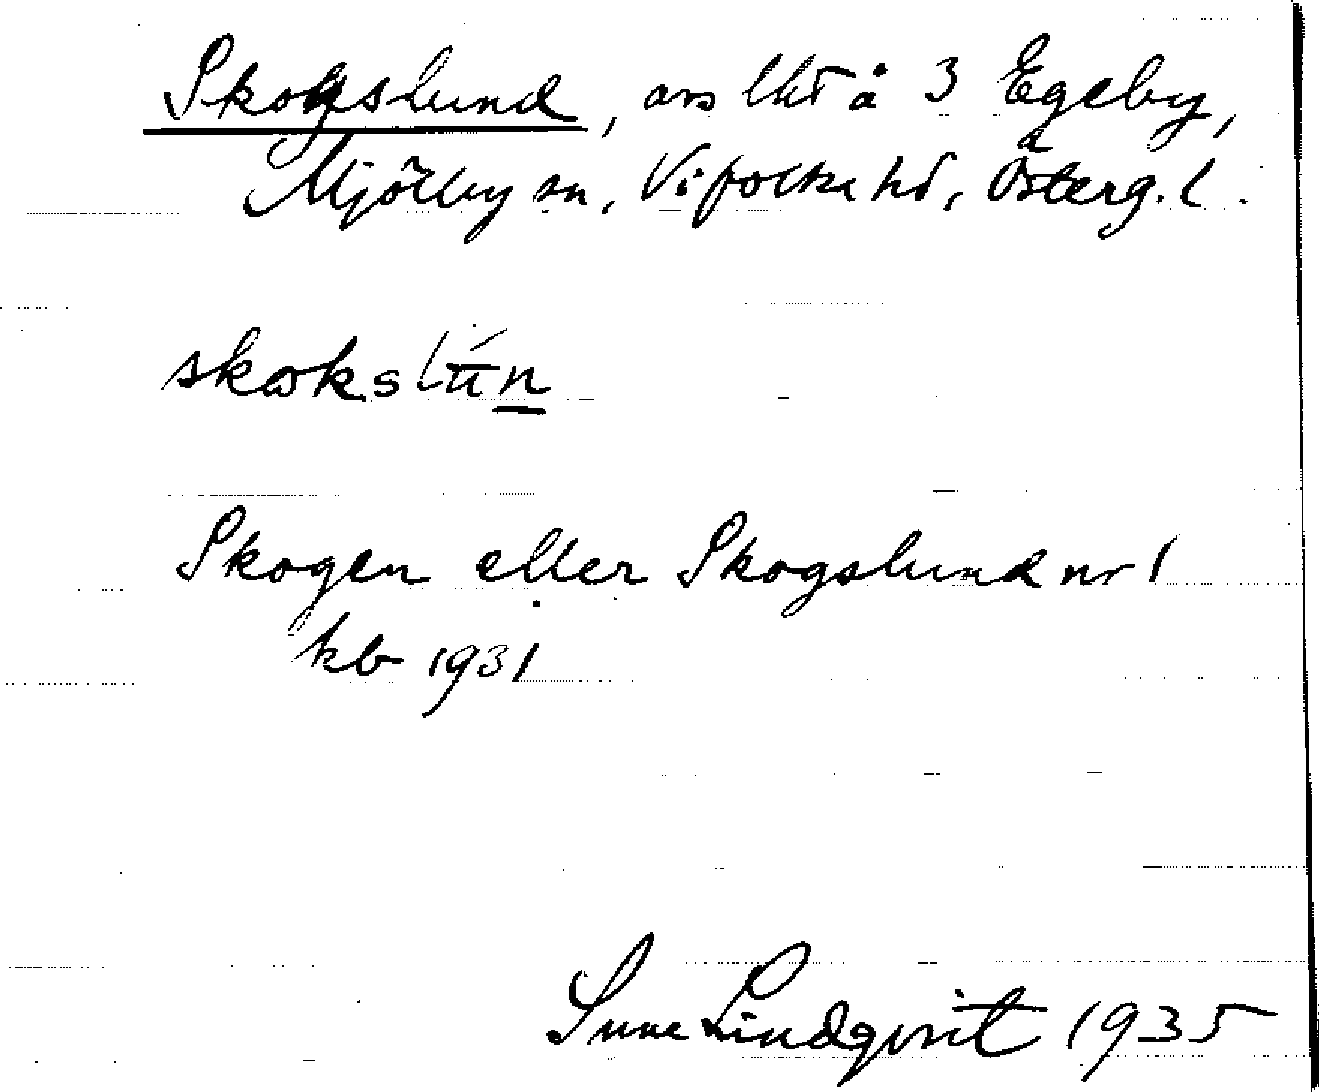 Skogslund, avs lht å 3 Egeby,
Mjölby sn, Vifolka hd, Österg. l.
skoks lún
Skogen eller Skogslund nr 1
kb 1931
Sune Lindqvist 1935